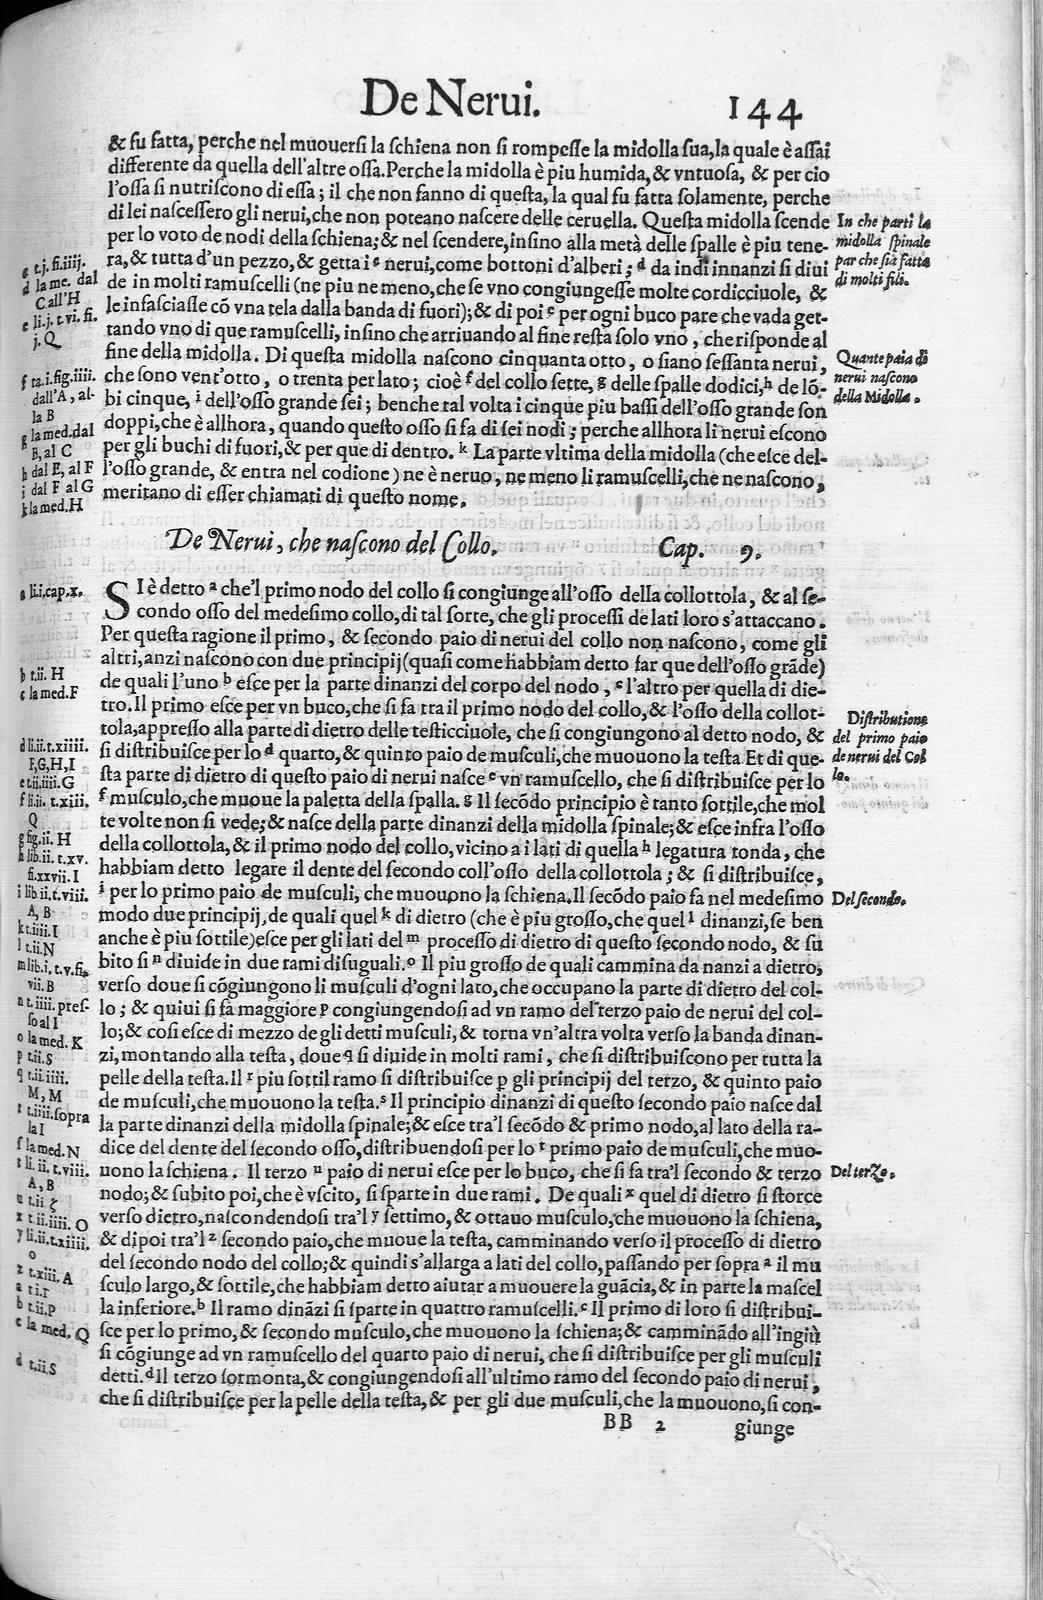 De Nerui. 144
& fu fatta, perche nel muouersi la schiena non si rompesse la midolla sua, la quale è assai
differente da quella dell'altre ossa. Perche la midolla è piu humida, & vntuosa, & per cio
l'ossa si nutriscono di essa; il che non fanno di questa, la qual fu fatta solamente, perche
di lei nascessero gli nerui, che non poteano nascere delle ceruella. Questa midolla scende
per lo voto de nodi della schiena; & nel scendere, insino alla metà delle spalle è piu tene-
ra, & tutta d'un pezzo, & getta i c nerui, come bottoni d'alberi; d da indi innanzi si diui
de in molti ramuscelli (ne piu ne meno, che se vno congiungesse molte cordicciuole, &
le infasciasse cõ vna tela dalla banda di fuori); & di poi e per ogni buco pare che vada get-
tando vno di que ramuscelli, insino che arriuando al fine resta solo vno, che risponde al
fine della midolla. Di questa midolla nascono cinquanta otto, o siano sessanta nerui,
che sono vent'otto, o trenta per lato; cioè f del collo sette, g delle spalle dodici, h de lõ-
bi cinque, i dell'osso grande sei; benche tal volta i cinque piu bassi dell'osso grande son
doppi, che è allhora, quando questo osso si fa di sei nodi; perche allhora li nerui escono
per gli buchi di fuori, & per que di dentro. k La parte vltima della midolla (che esce del-
l'osso grande, & entra nel codione) ne è neruo, ne meno li ramuscelli, che ne nascono,
meritano di esser chiamati di questo nome.
In che parti la
midolla spinale
par che sia fatta
di molti fili.
Quante paia di
nerui nascono
della Midolla.
c t.j. fi.iiij.
d la me. dal
C all'H
e li.j. t.vi. fi.
j. Q
f ta.i.fig.iiii.
dall'A, al-
la B
g la med.dal
B, al C
h dal E, al F
i dal F al G
k la med.H
De Nerui, che nascono del Collo. Cap. 9.
SI è detto a che'l primo nodo del collo si congiunge all'osso della collottola, & al se-
condo osso del medesimo collo, di tal sorte, che gli processi de lati loro s'attaccano.
Per questa ragione il primo, & secondo paio di nerui del collo non nascono, come gli
altri, anzi nascono con due principij (quasi come habbiam detto far que dell'osso grãde)
de quali l'uno b esce per la parte dinanzi del corpo del nodo, c l'altro per quella di die-
tro. Il primo esce per vn buco, che si fa tra il primo nodo del collo, & l'osso della collot-
tola, appresso alla parte di dietro delle testicciuole, che si congiungono al detto nodo, &
si distribuisce per lo d quarto, & quinto paio de musculi, che muouono la testa. Et di que-
sta parte di dietro di questo paio di nerui nasce e vn ramuscello, che si distribuisce per lo
f musculo, che muoue la paletta della spalla. g Il secõdo principio è tanto sottile, che mol
te volte non si vede; & nasce della parte dinanzi della midolla spinale; & esce infra l'osso
della collottola, & il primo nodo del collo, vicino a i lati di quella h legatura tonda, che
habbiam detto legare il dente del secondo coll'osso della collottola; & si distribuisce,
i per lo primo paio de musculi, che muouono la schiena. Il secõdo paio fa nel medesimo
modo due principij, de quali quel k di dietro (che è piu grosso, che quel l dinanzi, se ben
anche è piu sottile) esce per gli lati del m processo di dietro di questo secondo nodo, & su
bito si n diuide in due rami disuguali. o Il piu grosso de quali cammina da nanzi a dietro,
verso doue si cõgiungono li musculi d'ogni lato, che occupano la parte di dietro del col-
lo; & quiui si fa maggiore p congiungendosi ad vn ramo del terzo paio de nerui del col-
lo; & cosi esce di mezzo de gli detti musculi, & torna vn'altra volta verso la banda dinan-
zi, montando alla testa, doue q si diuide in molti rami, che si distribuiscono per tutta la
pelle della testa. Il r piu sottil ramo si distribuisce p gli principij del terzo, & quinto paio
de musculi, che muouono la testa. s Il principio dinanzi di questo secondo paio nasce dal
la parte dinanzi della midolla spinale; & esce tra'l secõdo & primo nodo, al lato della ra-
dice del dente del secondo osso, distribuendosi per lo t primo paio de musculi, che muo-
uono la schiena. Il terzo u paio di nerui esce per lo buco, che si fa tra'l secondo & terzo
nodo; & subito poi, che è vscito, si sparte in due rami. De quali x quel di dietro si storce
verso dietro, nascondendosi tra'l y settimo, & ottauo musculo, che muouono la schiena,
& dipoi tra'l z secondo paio, che muoue la testa, camminando verso il processo di dietro
del secondo nodo del collo; & quindi s'allarga a lati del collo, passando per sopra a il mu
sculo largo, & sottile, che habbiam detto aiutar a muouere la guãcia, & in parte la mascel
la inferiore. b Il ramo dinãzi si sparte in quattro ramuscelli. c Il primo di loro si distribui-
sce per lo primo, & secondo musculo, che muouono la schiena; & camminãdo all'ingiù
si cõgiunge ad vn ramuscello del quarto paio di nerui, che si distribuisce per gli musculi
detti. d Il terzo sormonta, & congiungendosi all'ultimo ramo del secondo paio di nerui,
che si distribuisce per la pelle della testa, & per gli due musculi, che la muouono, si con-
BB 2 giunge
a li.i,cap.x.
b t.ii. H
c la med.F
d li.ii.t.xiiii.
F,G,H,I
e t.ii.iiii.G
f li.ii. t.xiii.
Q
g fig.ii. H
h lib.ii. t.xv.
fi.xxvii. I
i lib.ii.t.viii.
A, B
k t.iiii.I
l t.ii.N
m lib.i, t.v.fi.
vii.B
n t.iiii.pres-
so al I
o la med. K
p t.ii.S
q t.ii.iiii.
M, M
r t.iiii.sopra
la I
s la med.N
t li. ii. t.viii.
A, B
u t.ii ζ
x t.ii.iiii. O
y li.ii.t.xiiii.
o
z t.xiii.A
a t i.r
b t.ii.P
c la med. Q
d t.ii.S
Distributione
del primo paio
de nerui del Col
lo.
Del secondo.
Del terzo.